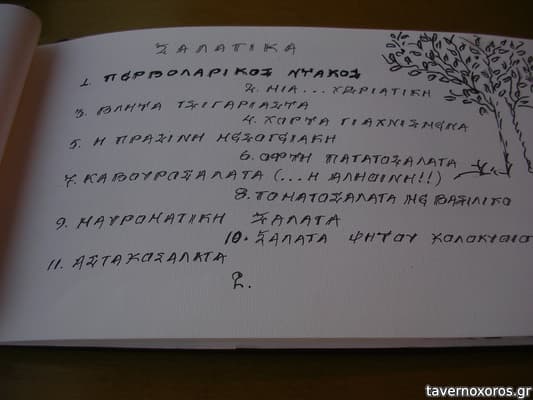 ΣΑΛΑΤΙΚΑ
1. ΠΕΡΒΟΛΑΡΙΚΟΣ ΝΤΑΚΟΣ
2. ΜΙΑ... ΧΩΡΙΑΤΙΚΗ
3. ΒΛΗΤΑ ΤΣΙΓΑΡΙΑΣΤΑ
4. ΧΟΡΤΑ ΓΙΑΧΝΙΣΜΕΝΑ
5. Η ΠΡΑΣΙΝΗ ΜΕΣΟΓΕΙΑΚΗ
6. ΟΦΤΗ ΠΑΤΑΤΟΣΑΛΑΤΑ
7. ΚΑΒΟΥΡΟΣΑΛΑΤΑ (... Η ΑΛΗΘΙΝΗ!!)
8. ΤΟΜΑΤΟΣΑΛΑΤΑ ΜΕ ΒΑΣΙΛΙΚΟ
9. ΜΑΥΡΟΜΑΤΙΚΗ ΣΑΛΑΤΑ
10. ΣΑΛΑΤΑ ΨΗΤΟΥ ΚΟΛΟΚΥΘΙΟΥ
11. ΑΣΤΑΚΟΣΑΛΑΤΑ
2.
tavernoxoros.gr